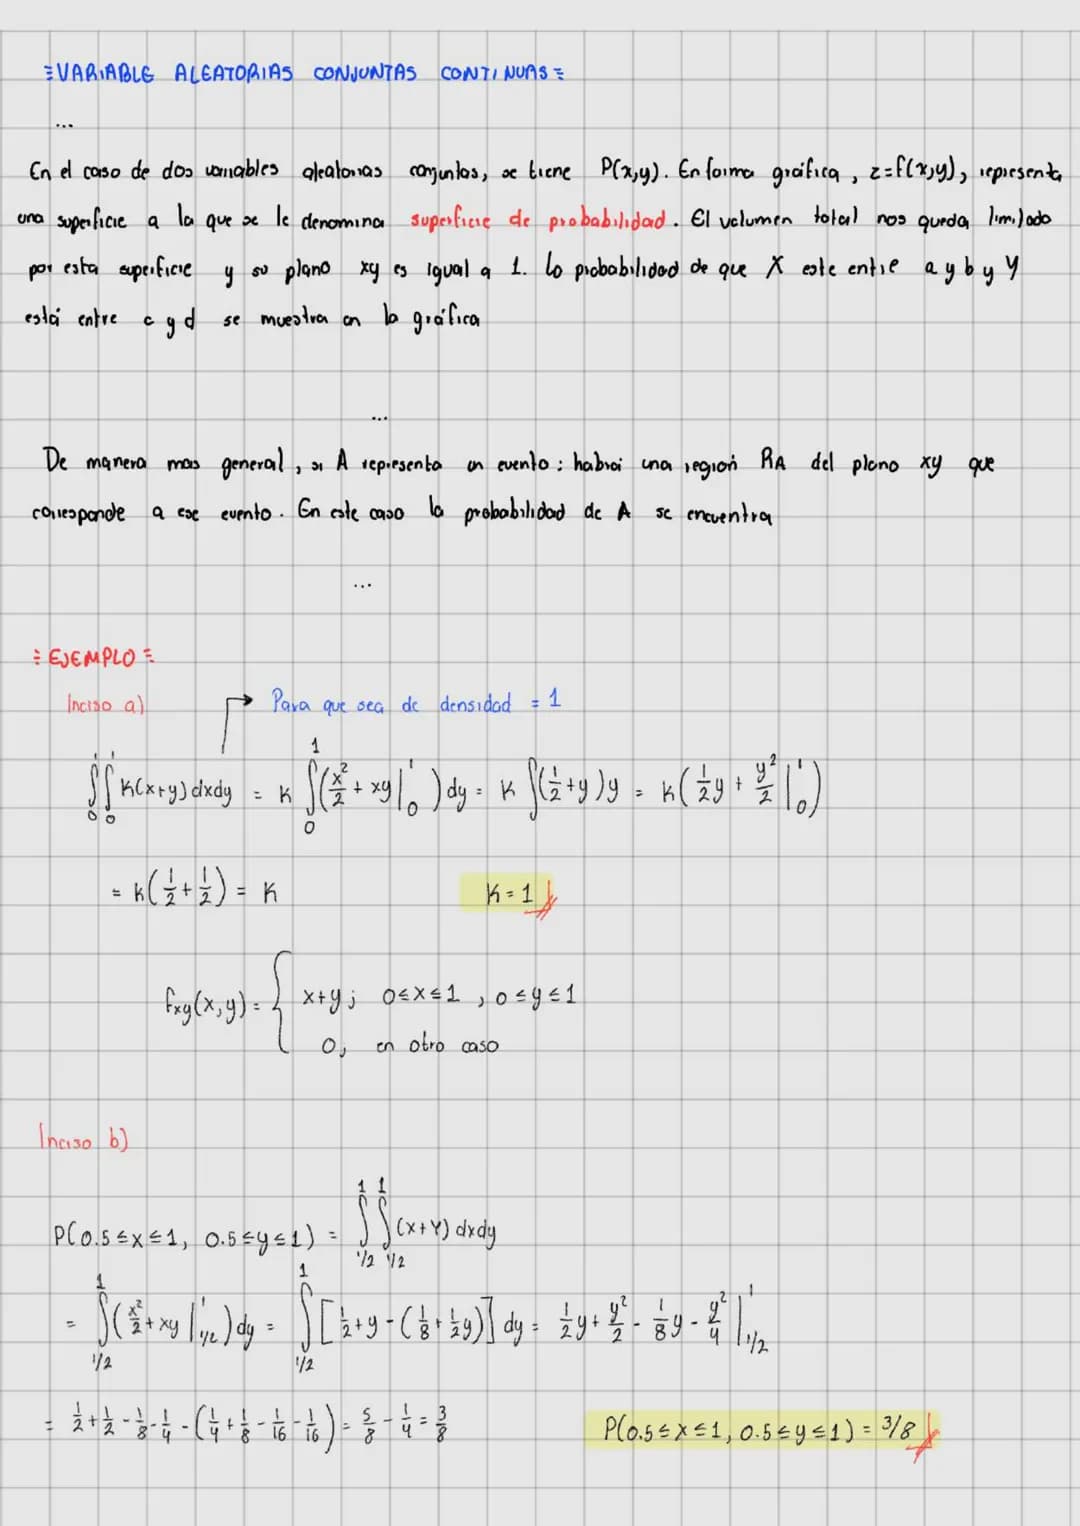 VARIABLE ALEATORIAS CONJUNTAS CONTINUAS
...
En el caso de dos variables aleatorias conjuntas, se tiene P(x,y). En forma gráfica, z=f(x,y), representa
una superficie a la que se le denomina superficie de probabilidad. El volumen total nos queda limitado
por esta superficie y su plano xy es igual a 1. La probabilidad de que X este entre a y b y Y
está entre c y d se muestra en la gráfica
...
De manera mas general, si A representa un evento: habrá una región RA del plano xy que
corresponde a ese evento. En este caso la probabilidad de A se encuentra
...
EJEMPLO
Inciso a)
Para que sea de densidad = 1
∫₀¹∫₀¹ K(x+y) dxdy = K ∫₀¹ (x²/2 + xy |₀¹) dy = K ∫(1/2+y)y = K(1/2y + y²/2 |₀¹)
= K(1/2+1/2) = K K=1
fxy(x,y) = { x+y; 0≤x≤1, 0≤y≤1
0; en otro caso
Inciso b)
P(0.5≤x≤1, 0.5≤y≤1) = ∫_{1/2}^{1}∫_{1/2}^{1} (x+Y) dxdy
= ∫_{1/2}^{1} (x²/2 + xy |_{1/2}^{1}) dy = ∫_{1/2}^{1} [1/2+y-(1/8+1/2y)] dy = 1/2y + y²/2 - 1/8y - y²/4 |_{1/2}^{1}
= 1/2+1/2-1/8-1/4-(1/4+1/8-1/16-1/16) = 5/8-1/4 = 3/8 P(0.5≤x≤1, 0.5≤y≤1) = 3/8